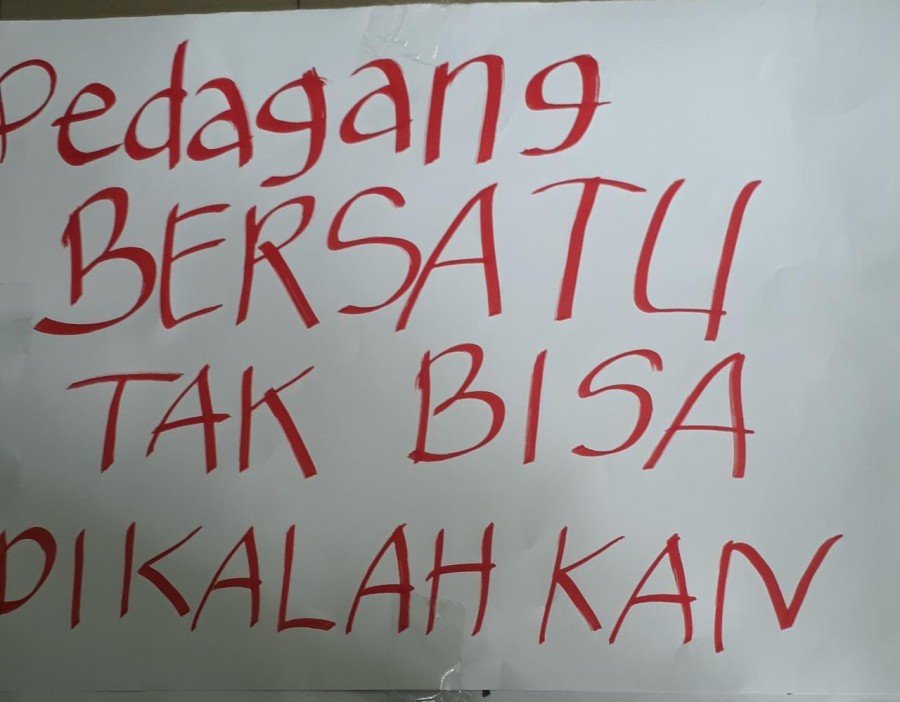 Pedagang
BERSATU
TAK BISA
DIKALAH KAN